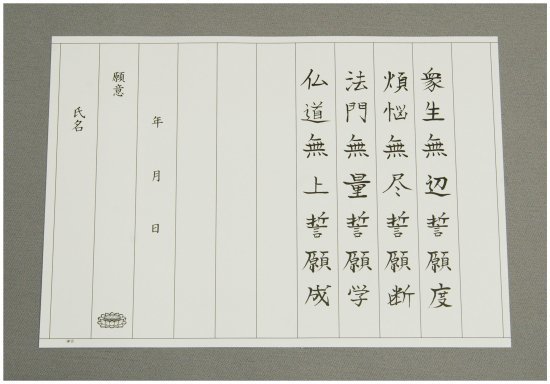 衆生無辺誓願度
煩悩無尽誓願断
法門無量誓願学
仏道無上誓願成
年　月　日
願意
氏名